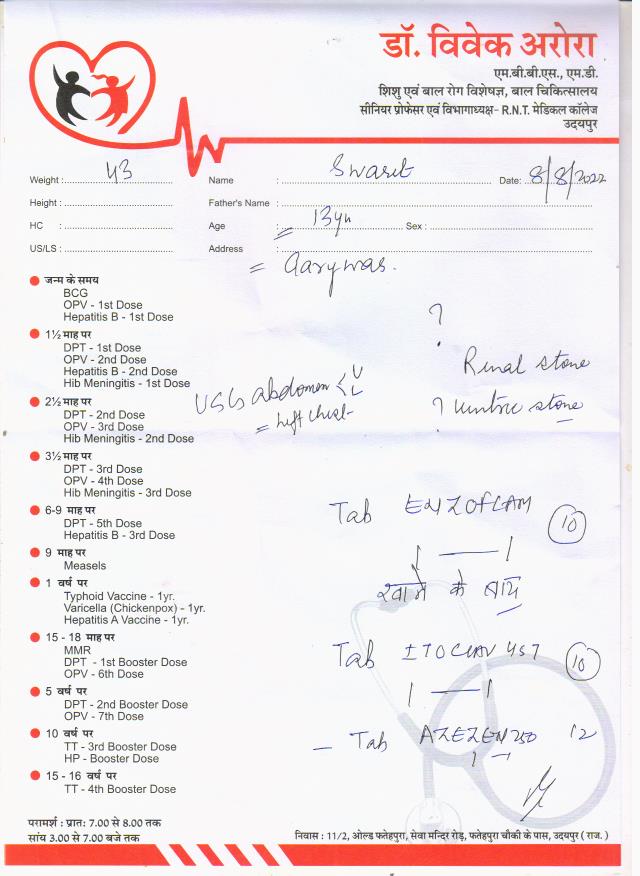 डॉ. विवेक अरोरा
एम.बी.बी.एस., एम.डी.
शिशु एवं बाल रोग विशेषज्ञ, बाल चिकित्सालय
सीनियर प्रोफेसर एवं विभागाध्यक्ष- R.N.T. मेडिकल कॉलेज
उदयपुर
Weight : 43 Name : Swarit Date: 8/8/2022
Height : Father's Name :
HC : Age : 13yr Sex :
US/LS : Address :
जन्म के समय
BCG
OPV - 1st Dose
Hepatitis B - 1st Dose
?
1½ माह पर
DPT - 1st Dose
OPV - 2nd Dose
Hepatitis B - 2nd Dose
Hib Meningitis - 1st Dose
Renal stone
USG abdomen < U L
? stone
2½ माह पर
DPT - 2nd Dose
OPV - 3rd Dose
Hib Meningitis - 2nd Dose
3½ माह पर
DPT - 3rd Dose
OPV - 4th Dose
Hib Meningitis - 3rd Dose
6-9 माह पर
DPT - 5th Dose
Hepatitis B - 3rd Dose
Tab ENZOFLAM 10
1 — 1
9 माह पर
Measels
खाने के बाद
1 वर्ष पर
Typhoid Vaccine - 1yr.
Varicella (Chickenpox) - 1yr.
Hepatitis A Vaccine - 1yr.
15 - 18 माह पर
MMR
DPT - 1st Booster Dose
OPV - 6th Dose
Tab 10
1 — 1
5 वर्ष पर
DPT - 2nd Booster Dose
OPV - 7th Dose
10 वर्ष पर
TT - 3rd Booster Dose
HP - Booster Dose
Tab 12
15 - 16 वर्ष पर
TT - 4th Booster Dose
परामर्श : प्रात: 7.00 से 8.00 तक
सांय 3.00 से 7.00 बजे तक
निवास : 11/2, ओल्ड फतेहपुरा, सेवा मन्दिर रोड़, फतेहपुरा चौकी के पास, उदयपुर ( राज. )